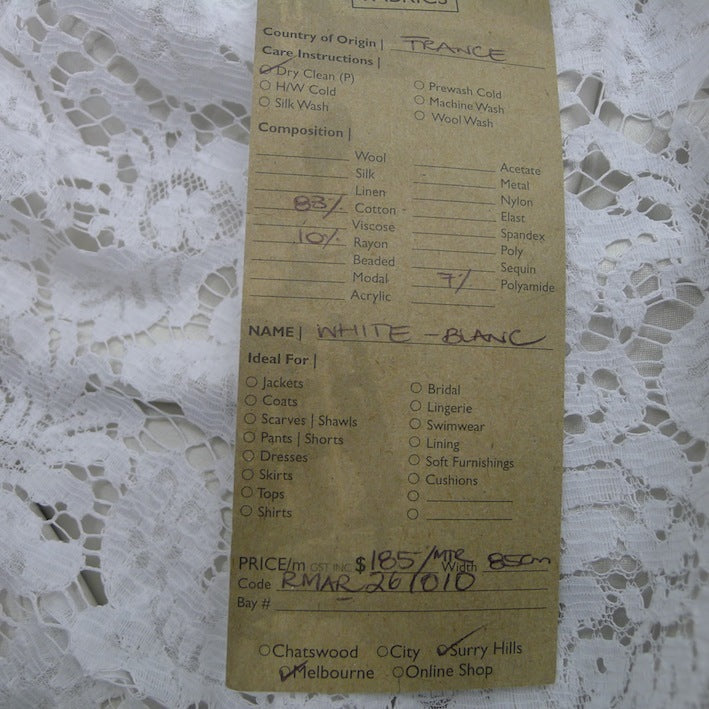 FABRICS
Country of Origin | FRANCE
Care Instructions |
Dry Clean (P)
H/W Cold
Silk Wash
Prewash Cold
Machine Wash
Wool Wash
Composition |
Wool
Silk
Linen
83% Cotton
Viscose
10% Rayon
Beaded
Modal
Acrylic
Acetate
Metal
Nylon
Elast
Spandex
Poly
Sequin
7% Polyamide
NAME | WHITE - BLANC
Ideal For |
Jackets
Coats
Scarves | Shawls
Pants | Shorts
Dresses
Skirts
Tops
Shirts
Bridal
Lingerie
Swimwear
Lining
Soft Furnishings
Cushions
PRICE/m GST INC $185/MTR Width 85cm
Code RMAR 261010
Bay #
Chatswood City Surry Hills
Melbourne Online Shop